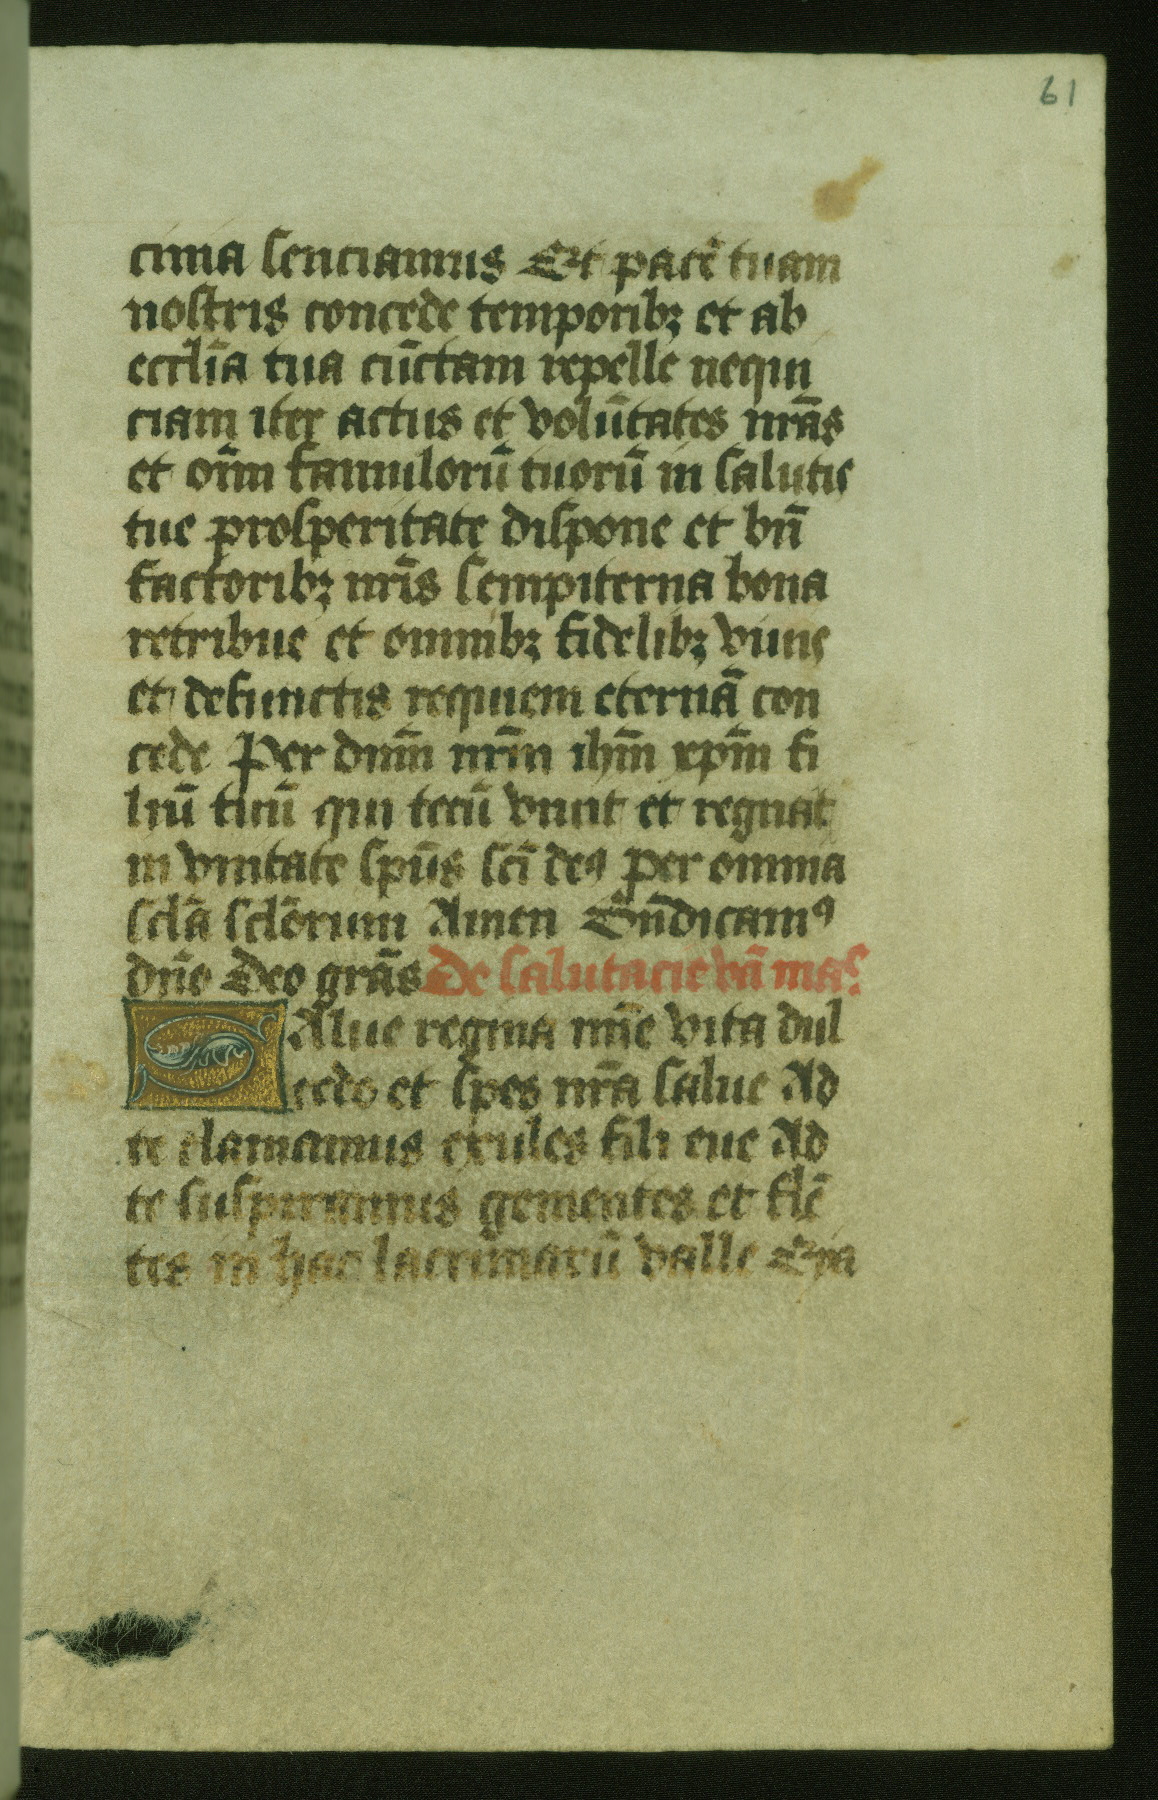 61
cinia senciamus Et pacē tuam
nostris concede temporibꝫ et ab
eccl̄ia tua cūctam repelle nequi
ciam iter actus et volūtates nr̄as
et om̄m famulorū tuorū in salutis
tue prosperitate dispone et bn̄
factoribꝫ nr̄is sempiterna bona
retribue et omnibꝫ fidelibꝫ viuis
et defunctis requiem eternā con
cede Per dnm̄ nrm̄ ihm̄ xpm̄ fi
liū tuū qui tecū viuit et regnat
in vnitate sp̄us sc̄i deꝰ per omnia
scl̄a scl̄orum Amen Bn̄dicamꝰ
dn̄o Deo gr̄as De salutacie
Salue regina mīe vita dul
cedo et spes nr̄a salue Ad
te clamamus exules filii eue Ad
te suspiramus gementes et flē
tes in hac lacrimarū valle Eya